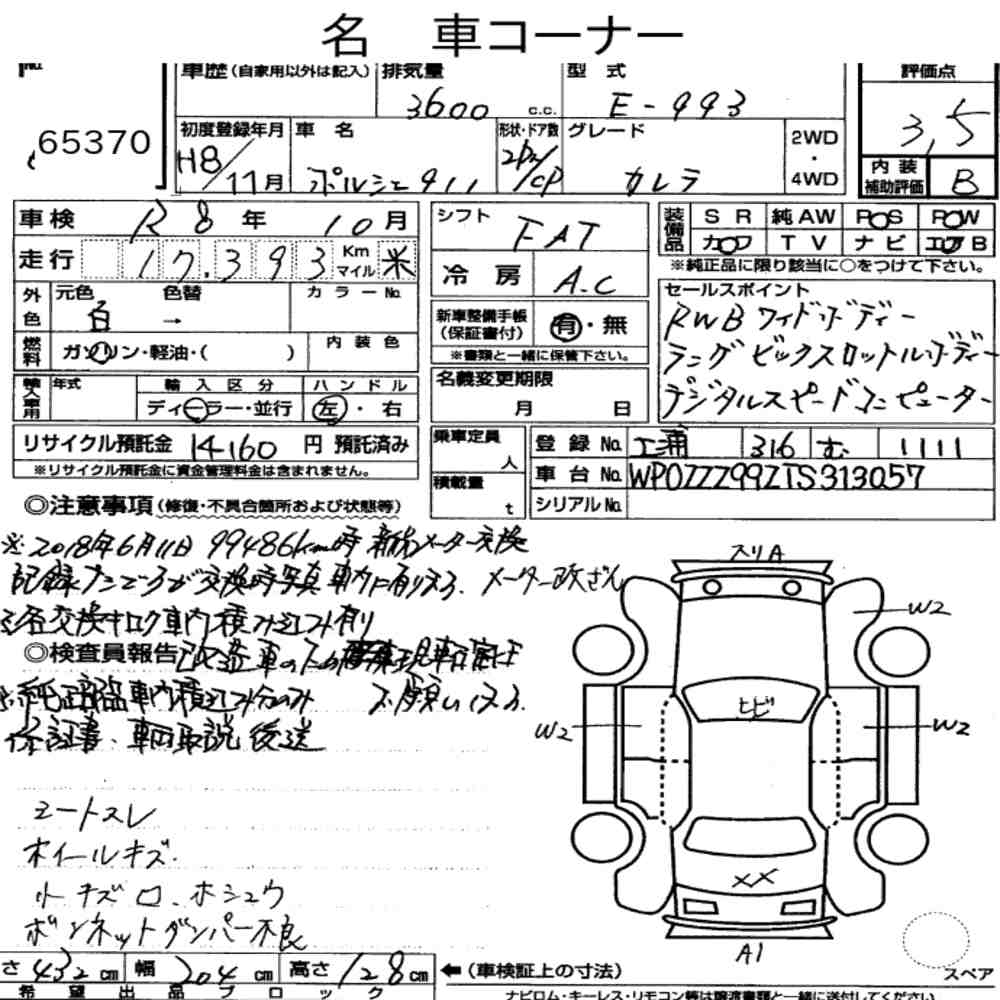 名 車コーナー
車歴(自家用以外は記入) 排気量 型式 評価点
3600 c.c. E-993 3,5
65370
初度登録年月 車名 形状・ドア数 グレード 2WD・4WD
H8/11月 ポルシェ911 2Dr/CP カレラ
内装補助評価 B
車検 R8年 10月
走行 17.393 Km マイル 米
外色 元色 色替 カラーNo.
白 →
燃料 ガソリン・軽油・( ) 内装色
輸入車用 年式 輸入区分 ハンドル
ディーラー・並行 左・右
リサイクル預託金 14160 円 預託済み
※リサイクル預託金に資金管理料金は含まれません。
シフト FAT
冷房 A.C
新車整備手帳(保証書付) 有・無
※書類と一緒に保管下さい。
名義変更期限
月 日
装備品 SR 純AW POS POW
カワ TV ナビ エアB
※純正品に限り該当に○をつけて下さい。
セールスポイント
RWBワイドボディー
ラングビックスロットルボディー
デジタルスピードコンピューター
乗車定員 人
積載量 t
登録No. 316 む 1111
車台No. WP0ZZZ99ZTS313057
シリアルNo.
◎注意事項(修復・不具合箇所および状態等)
※2018年6月11日 99486km時 新品メーター交換
記録ナンバーが交換時写真車内に有ります。メーター改ざん
※各交換キロク車内積み込み有り
◎検査員報告 改造車の為現車確認
※純正部品車内積込み分のみ お願いします。
保証書、車両取説後送
シートスレ
ホイールキズ.
小キズ ロ.ホシュウ
ボンネットダンパー不良
スリA
W2
ヒビ
W2
W2
XX
A1
スペア
さ 432cm 幅 204cm 高さ 128cm
←(車検証上の寸法)
希望出品ブロック
ナビロム・キーレス・リモコン等は譲渡書類と一緒に送付してください。